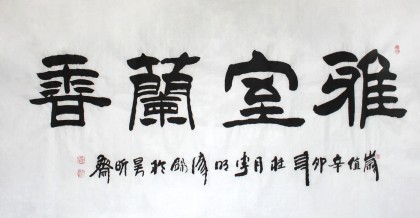 雅室蘭香
歲值辛卯年桂月李明於昊昕齋